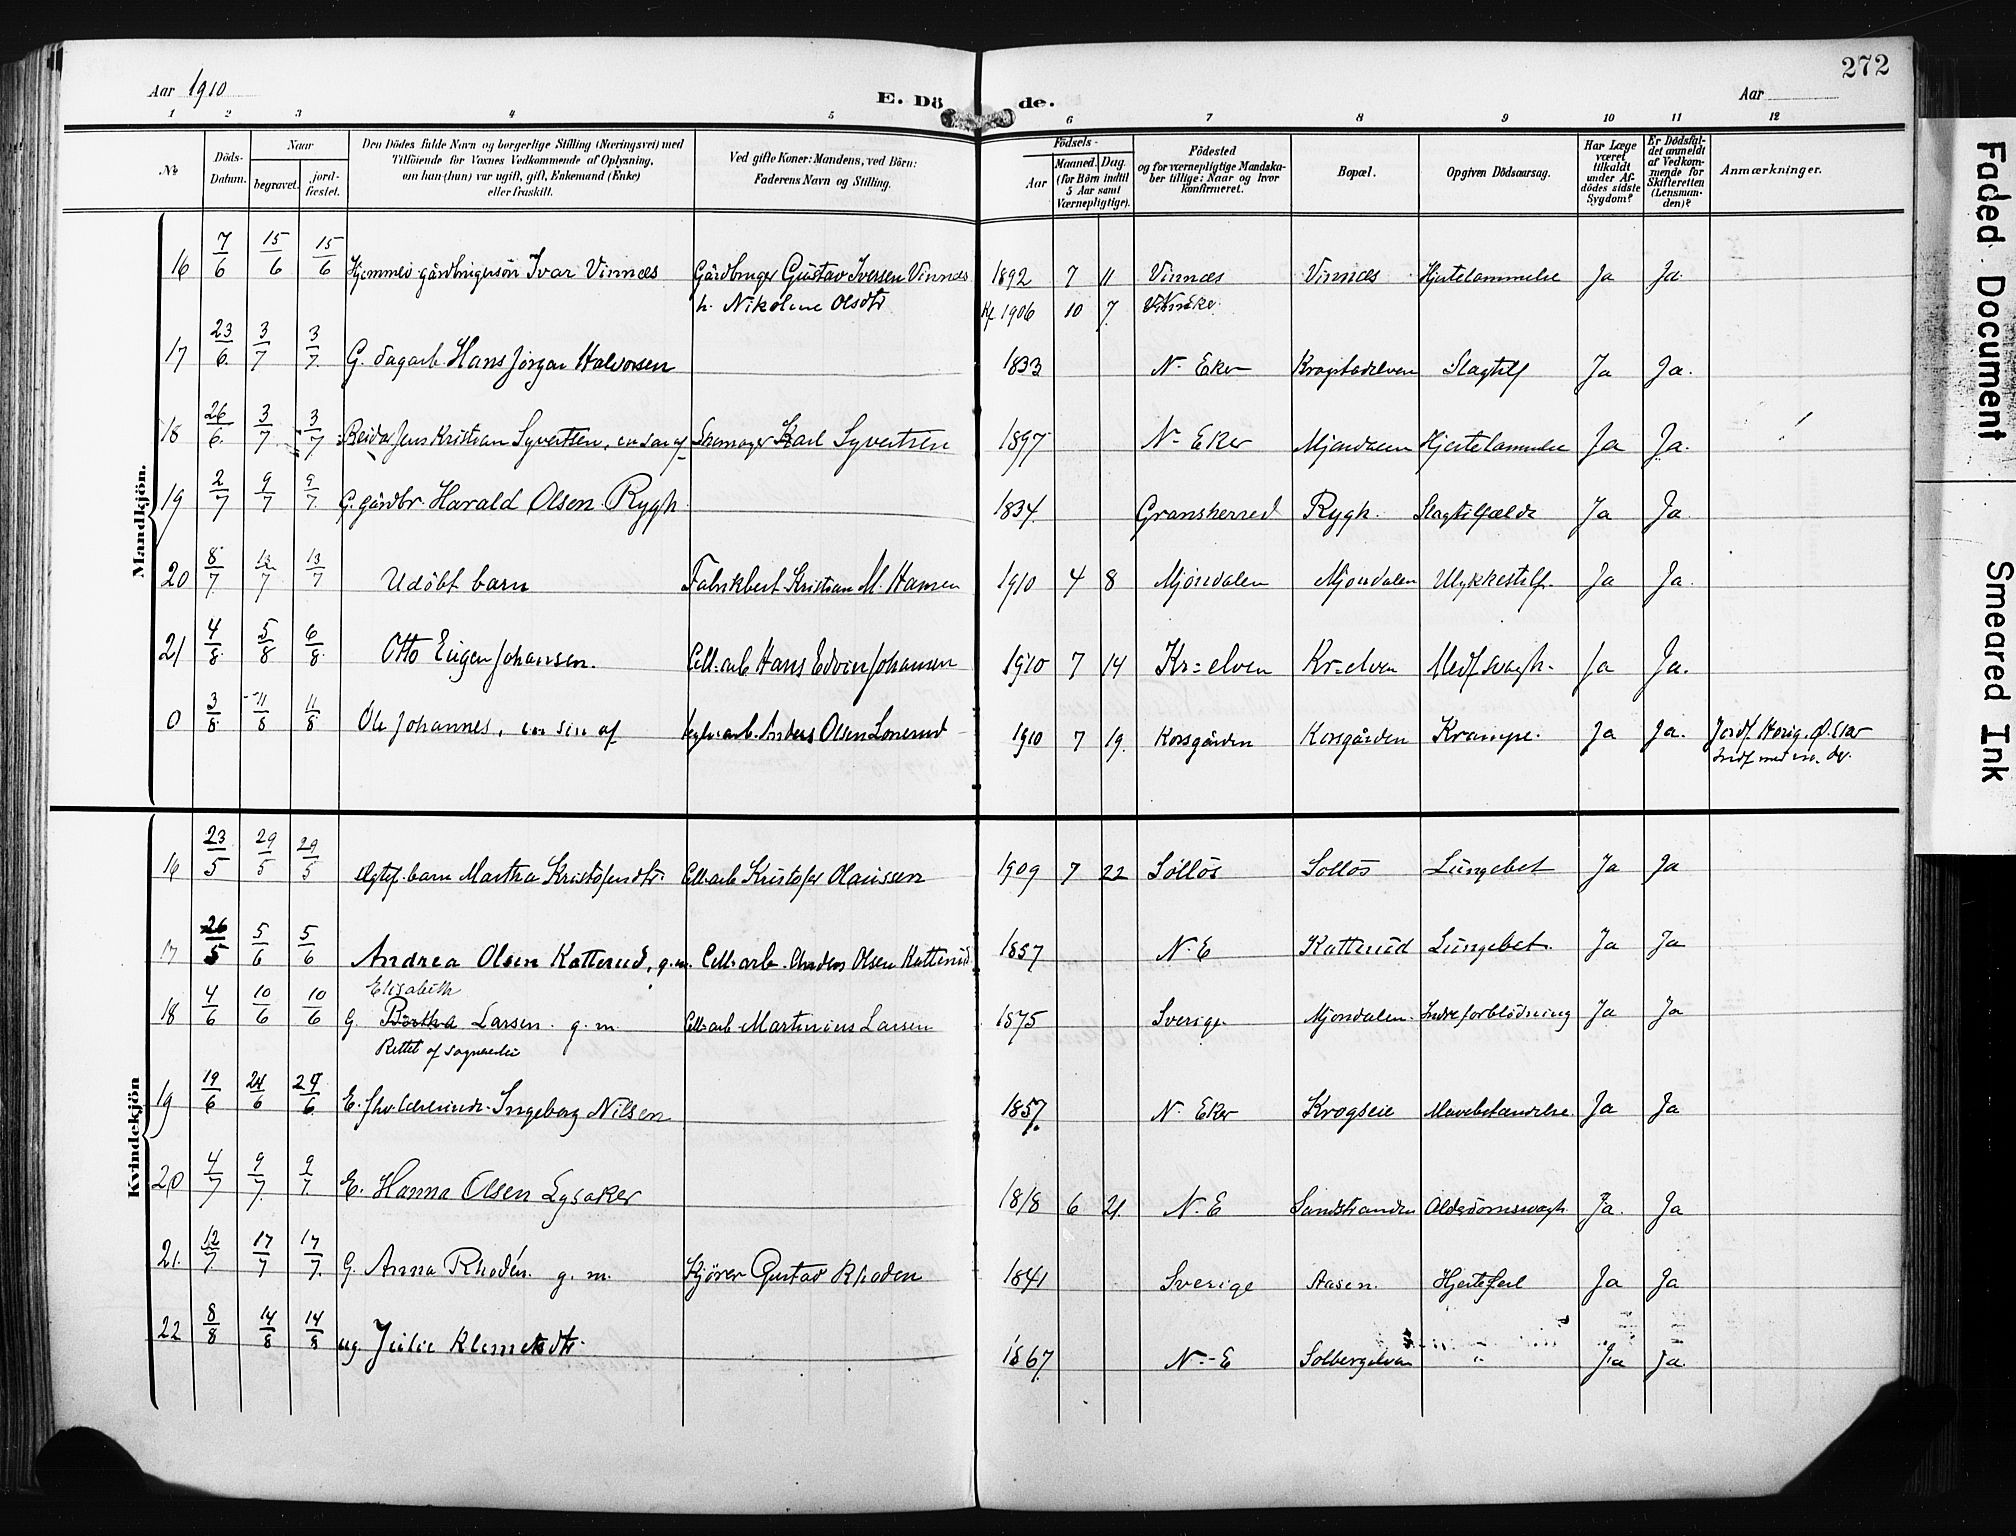 272
Aar 1910
E. Dö de.
Aar
1 2 3 4 5 6 7 8 9 10 11 12
No
Döds-Datum.
Naar
begravet.
jord-fæstet.
Den Dödes fulde Navn og borgerlige Stilling (Næringsvei) med
Tilföiende for Voxnes Vedkommende af Oplysning,
om han (hun) var ugift, gift, Enkemand (Enke)
eller fraskilt.
Ved gifte Koner: Mandens, ved Börn:
Faderens Navn og Stilling.
Födsels-
Aar
Maaned. Dag.
(for Börn indtil
5 Aar samt
Værnepligtige).
Födested
og for værnepligtige Mandska-
ber tillige: Naar og hvor
konfirmeret.
Bopæl.
Opgiven Dödsaarsag.
Har Læge
været
tilkaldt
under Af-
dödes sidste
Sygdom?
Er Dödsfal-
det anmeldt
af Vedkom-
mende for
Skifteretten
(Lensman-
den)?
Anmærkninger.
Mandkjön.
16 7/6 15/6 15/6 Hjemmev. gårdbrugersön Ivar Vinnæs Gårdbruger Gustav Iversen Vinnæs 1892 7 11 Vinnæs Vinnæs Hjertelammelse Ja Ja.
h. Nikoline Olsdtr Kf 1906 10 7.
17 23/6. 3/7 3/7. G. dagarb Hans Jørgen Halvorsen 1833 N. Eker Krogstadelven Slagtilf Ja Ja.
18 26/6. 3/7 3/7 Reidar Jens Kristian Syvertsen, en søn af Skomager Karl Syvertsen 1897 N. Eker Mjøndalen Hjertelammelse Ja Ja.
19 2/7 9/7 9/7. G. gårdbr Harald Olsen Rygh 1834. Gransherred Rygh. Slagtilfælde Ja Ja.
20 8/7. 13/7 13/7 Udöbt barn Fabrikbest Kristian M. Hansen 1910 4 8 Mjöndalen Mjöndalen Ulykkestilf. Ja Ja.
21 4/8. 5/8 6/8. Otto Eugen Johansen. Cell. arb Hans Edvin Johansen 1910 7 14 Kr=elven Kr=elven Medf svagh. Ja Ja.
0 3/8. 11/8 11/8 Ole Johannes, en sön af Anders Olsen Lonerud 1910 7 19. Korsgården Korsgården Krampe. Ja Ja.
Kvindekjön
16 23/5 29/5 29/5 Ægtef. barn Martha Kristofersdtr. Cell. arb Kristofer Olaussen 1909 7 22 Solløs Solløs Lungebet Ja Ja
17 26/5 5/6 5/6 Andrea Olsen Katterud, g.m. Cell. arb. Anders Olsen Katterud 1857 N. E Katterud Lungebet. Ja Ja
Elisabeth
18 4/6 10/6 10/6 G. Bertha Larsen. g. m. Cell. arb Martinius Larsen 1875 Sverige Mjøndalen. Indre forblödning Ja Ja
Rettet af
19 19/6 24/6 24/6 E. Ingeborg Nilsen 1857. N. Eker Krogseie Mavebetændelse. Ja Ja
20 4/7 9/7. 9/7. E. Hanna Olsen Lysaker 1818 6 21. N. E Sandstranden Alderdomssvagh. Ja. Ja
21. 12/7 17/7 17/7. G. Anna Rhodén g. m. Kjører Gustav Rhoden 1841 Sverige Aasen. Hjertefeil Ja Ja
22 8/8 14/8 14/8 ug. Julie Klemetsdtr. 1867. N.-E Solbergelven " Ja Ja.
Faded Document
Smeared Ink